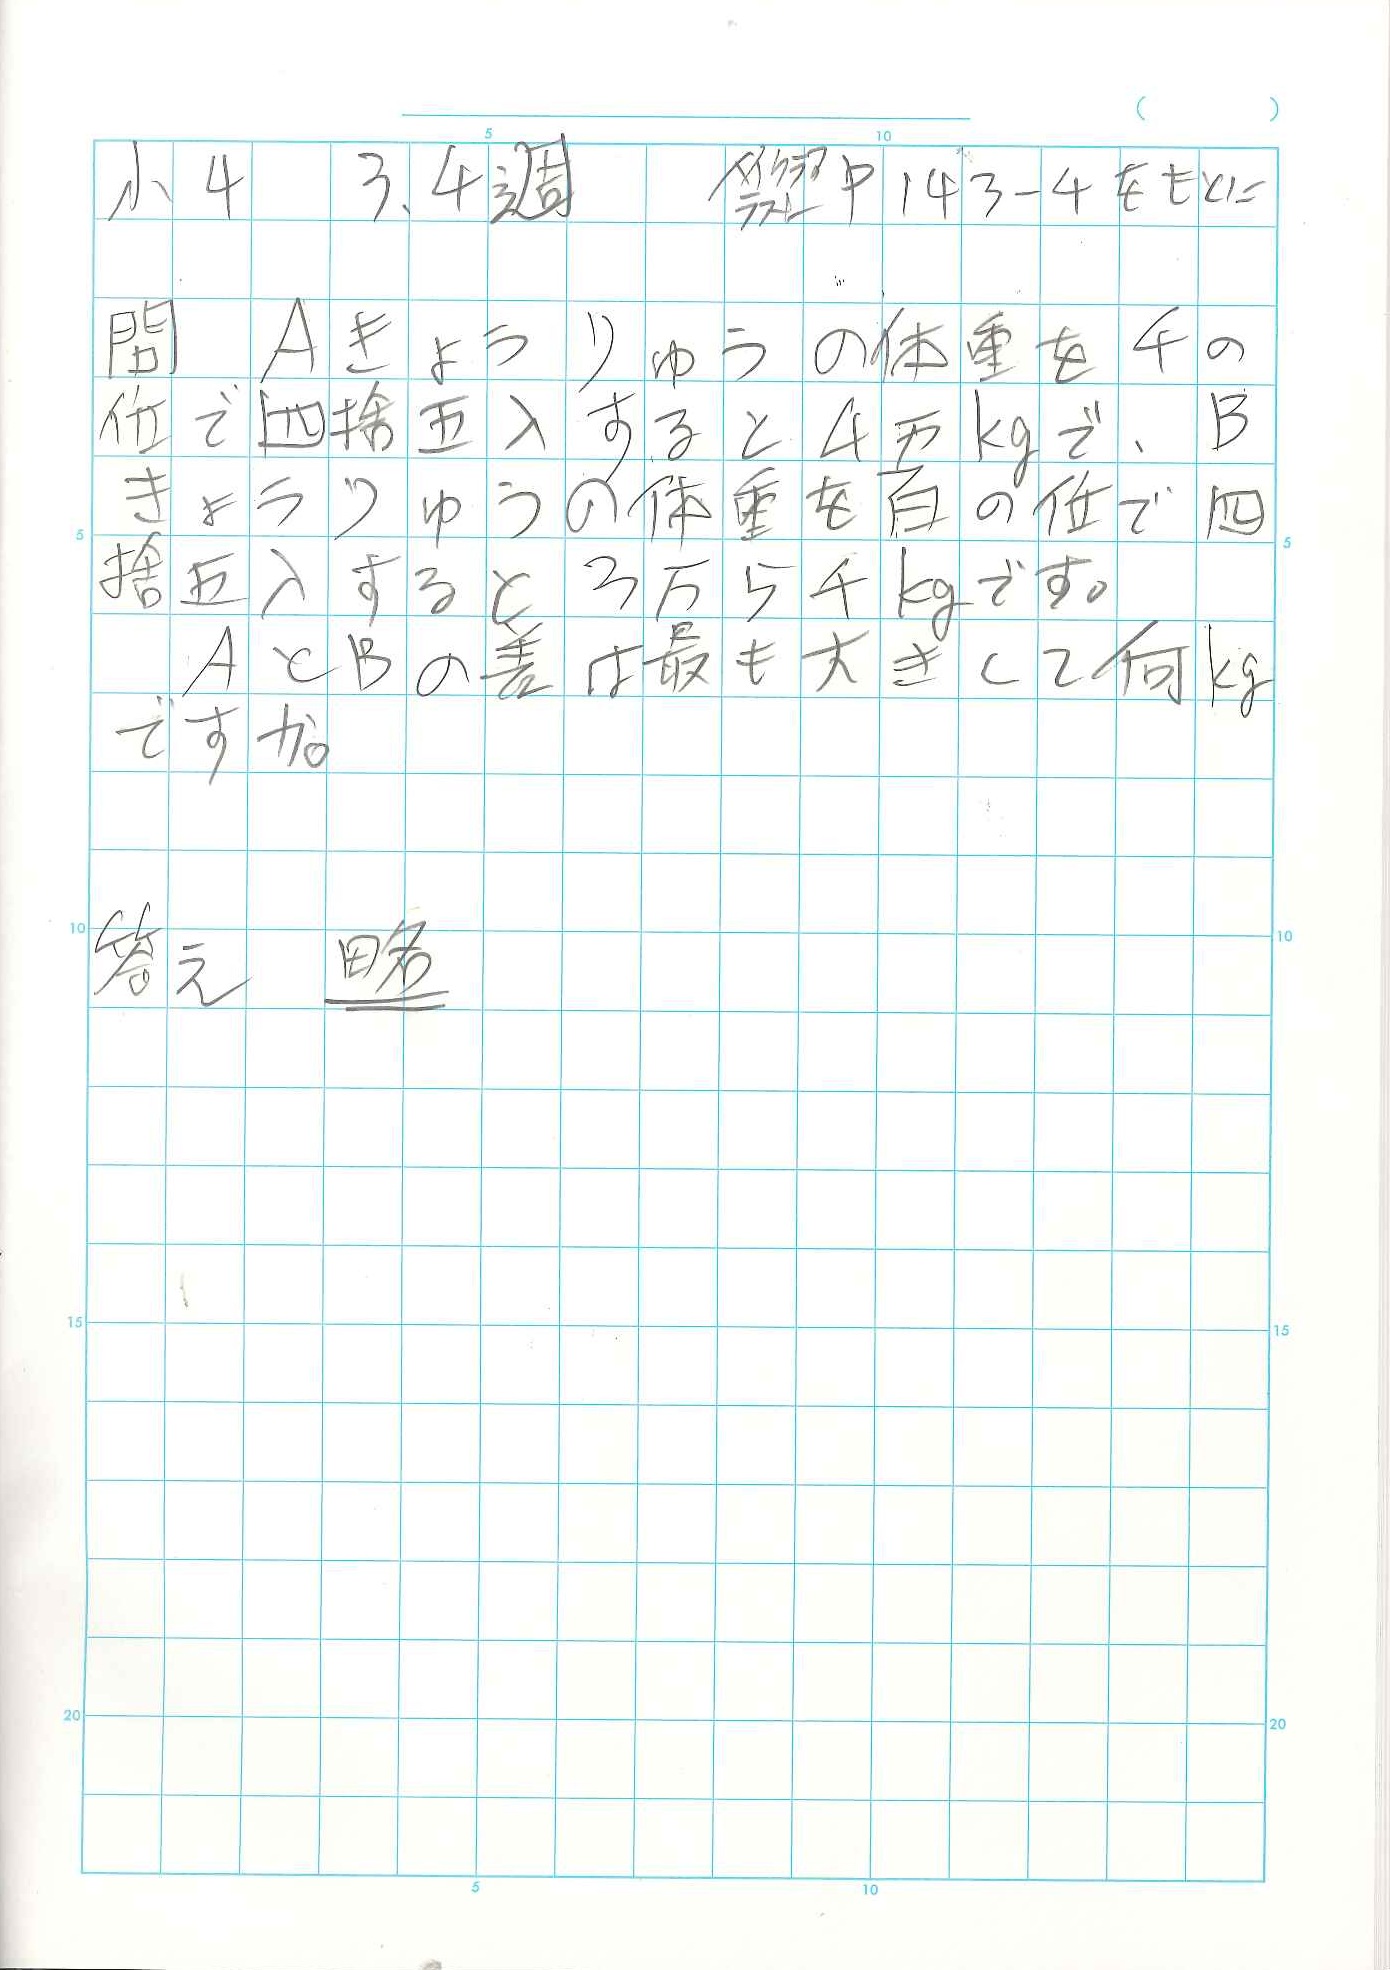 ( )
5 10
小4 3、4週 中143-4をもとに
問 Aきょうりゅうの体重を千の
位で四捨五入すると4万kgで、B
きょうりゅうの体重を百の位で四
5 5
捨五入すると3万5千kgです。
AとBの差は最も大きくて何kg
ですか。
10 答え 略 10
15 15
20 20
5 10